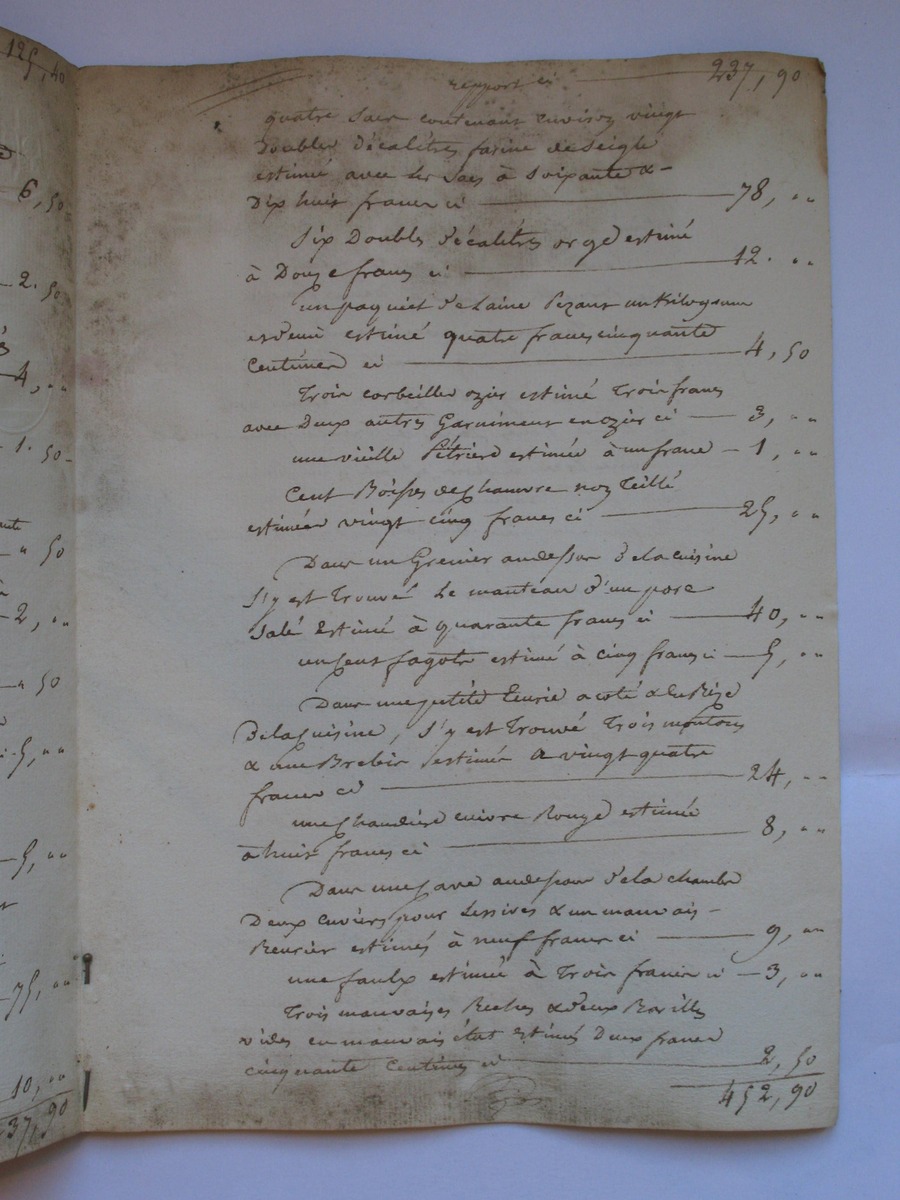 125,40
6,50
2.50
4,""
1.50
" 50
2,""
" 50
5,""
5,""
75,""
10,""
37,90
repport ci 237,90
quatre sacs contenant environ vingt
Doubles Décalitres farine de Seigle
estimé avec les sacs à soixante &
Dix huit francs ci 78, ""
Six Doubles décalitres orge estimé
à Douze francs ci 12. ""
un paquet de Laine Pezant un Kilogramme
et demi estimé quatre francs cinquante
Centimes ci 4,50
Trois corbeilles ozier estimé Trois francs
avec Deux autres Garniment en ozier ci 3, ""
une vieille Pétriere estimée à un franc 1, ""
Cent de Chanvre non Teillé
estimées vingt cinq francs ci 25, ""
Dans un Grenier au dessus de la cuisine
s'y est Trouvé Le manteau d'un porc
salé Estimé à quarante francs ci 40, ""
un cent fagots estimé à cinq francs ci 5, ""
Dans une petite Ecurie a coté
De la cuisine, s'y est Trouvé Trois moutons
& une Brebis estimés a vingt quatre
francs ci 24, ""
une Chaudiere cuivre Rouge estimée
à huit francs ci 8, ""
Dans une Cave au dessous de la chambre
Deux cuviers pour Lessives & un mauvais
estimés à neuf francs ci 9, ""
une faulx estimée à Trois francs ci 3, ""
Trois mauvaises & deux
vides en mauvais état estimés Deux francs
cinquante Centimes ci 2,50
452,90